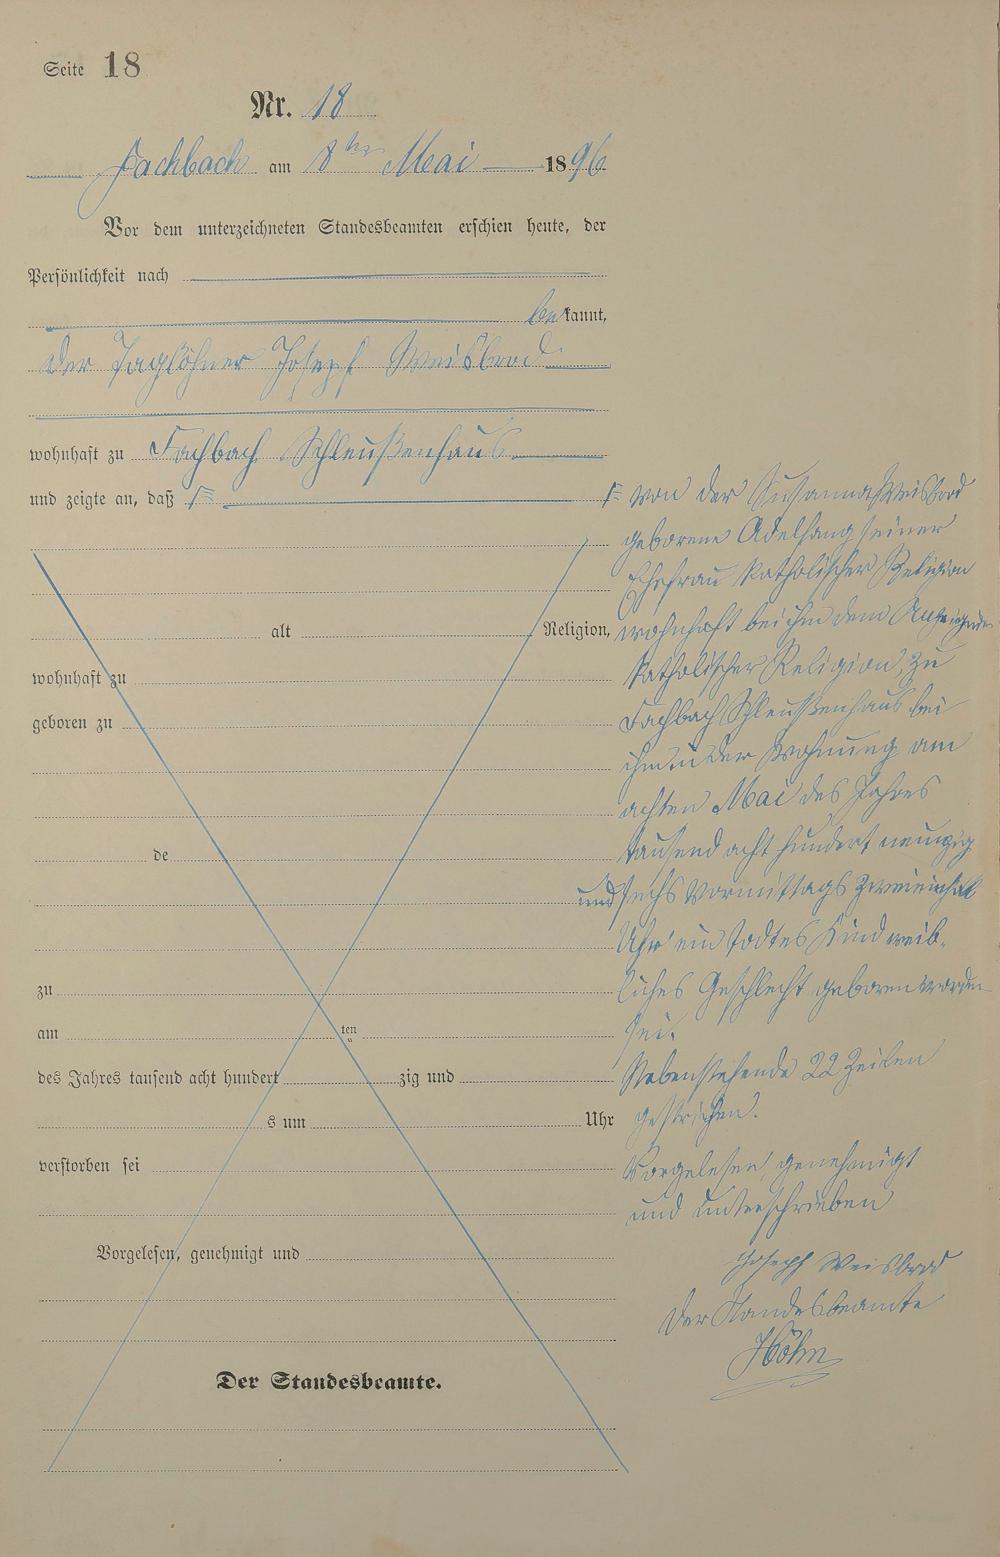 Seite 18
Nr. 18
Fachbach am 8ten Mai 1896
Vor dem unterzeichneten Standesbeamten erschien heute, der
Persönlichkeit nach
bekannt,
der Taglöhner Joseph Weisbrod
wohnhaft zu Fachbach Schleußenhaus
und zeigte an, daß
alt Religion,
wohnhaft zu
geboren zu
de
zu
am ten
des Jahres tausend acht hundert zig und
s um Uhr
verstorben sei
Vorgelesen, genehmigt und
Der Standesbeamte.
von der Susanna Weisbrod
geborene Adelfang seiner
Ehefrau katholischer Religion
wohnhaft bei ihm dem Anzeigenden
katholischer Religion, zu
Fachbach Schleußenhaus bei
ihm in der Wohnung am
achten Mai des Jahres
tausend acht hundert neunzig
und sechs Vormittags Zweieinhalb
Uhr ein todtes Kind weib-
liches Geschlecht geboren worden
sei.
Nebenstehende 22 Zeilen
gestrichen.
Vorgelesen, genehmigt
und unterschrieben
Joseph Weisbrod
Der Standesbeamte
Höhn